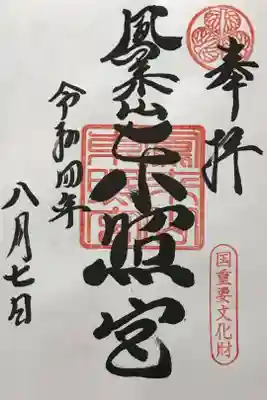 奉拝
鳳来山東照宮
令和四年
八月七日
国重要文化財